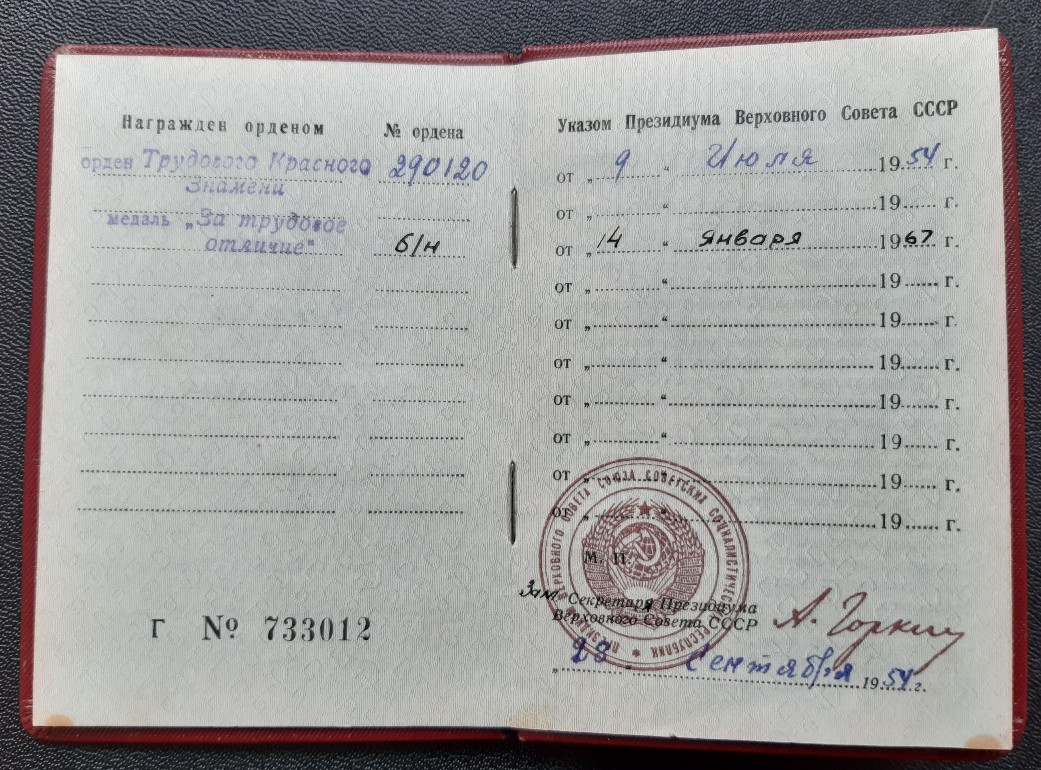 Награжден орденом № ордена
орден Трудового Красного 290120
Знамени
медаль „За трудовое
отличие" б/н
Г № 733012
Указом Президиума Верховного Совета СССР
от „ 9 “ Июля 1954 г.
от „ “ 19 г.
от „ 14 “ января 1967 г.
от „ “ 19 г.
от „ “ 19 г.
от „ “ 19 г.
от „ “ 19 г.
от „ “ 19 г.
от „ “ 19 г.
от „ “ 19 г.
М. П.
Зам. Секретаря Президиума
Верховного Совета СССР А. Горкин
„ 28 “ Сентября 1954 г.
ПРЕЗИДИУМ ВЕРХОВНОГО СОВЕТА СОЮЗА СОВЕТСКИХ СОЦИАЛИСТИЧЕСКИХ РЕСПУБЛИК